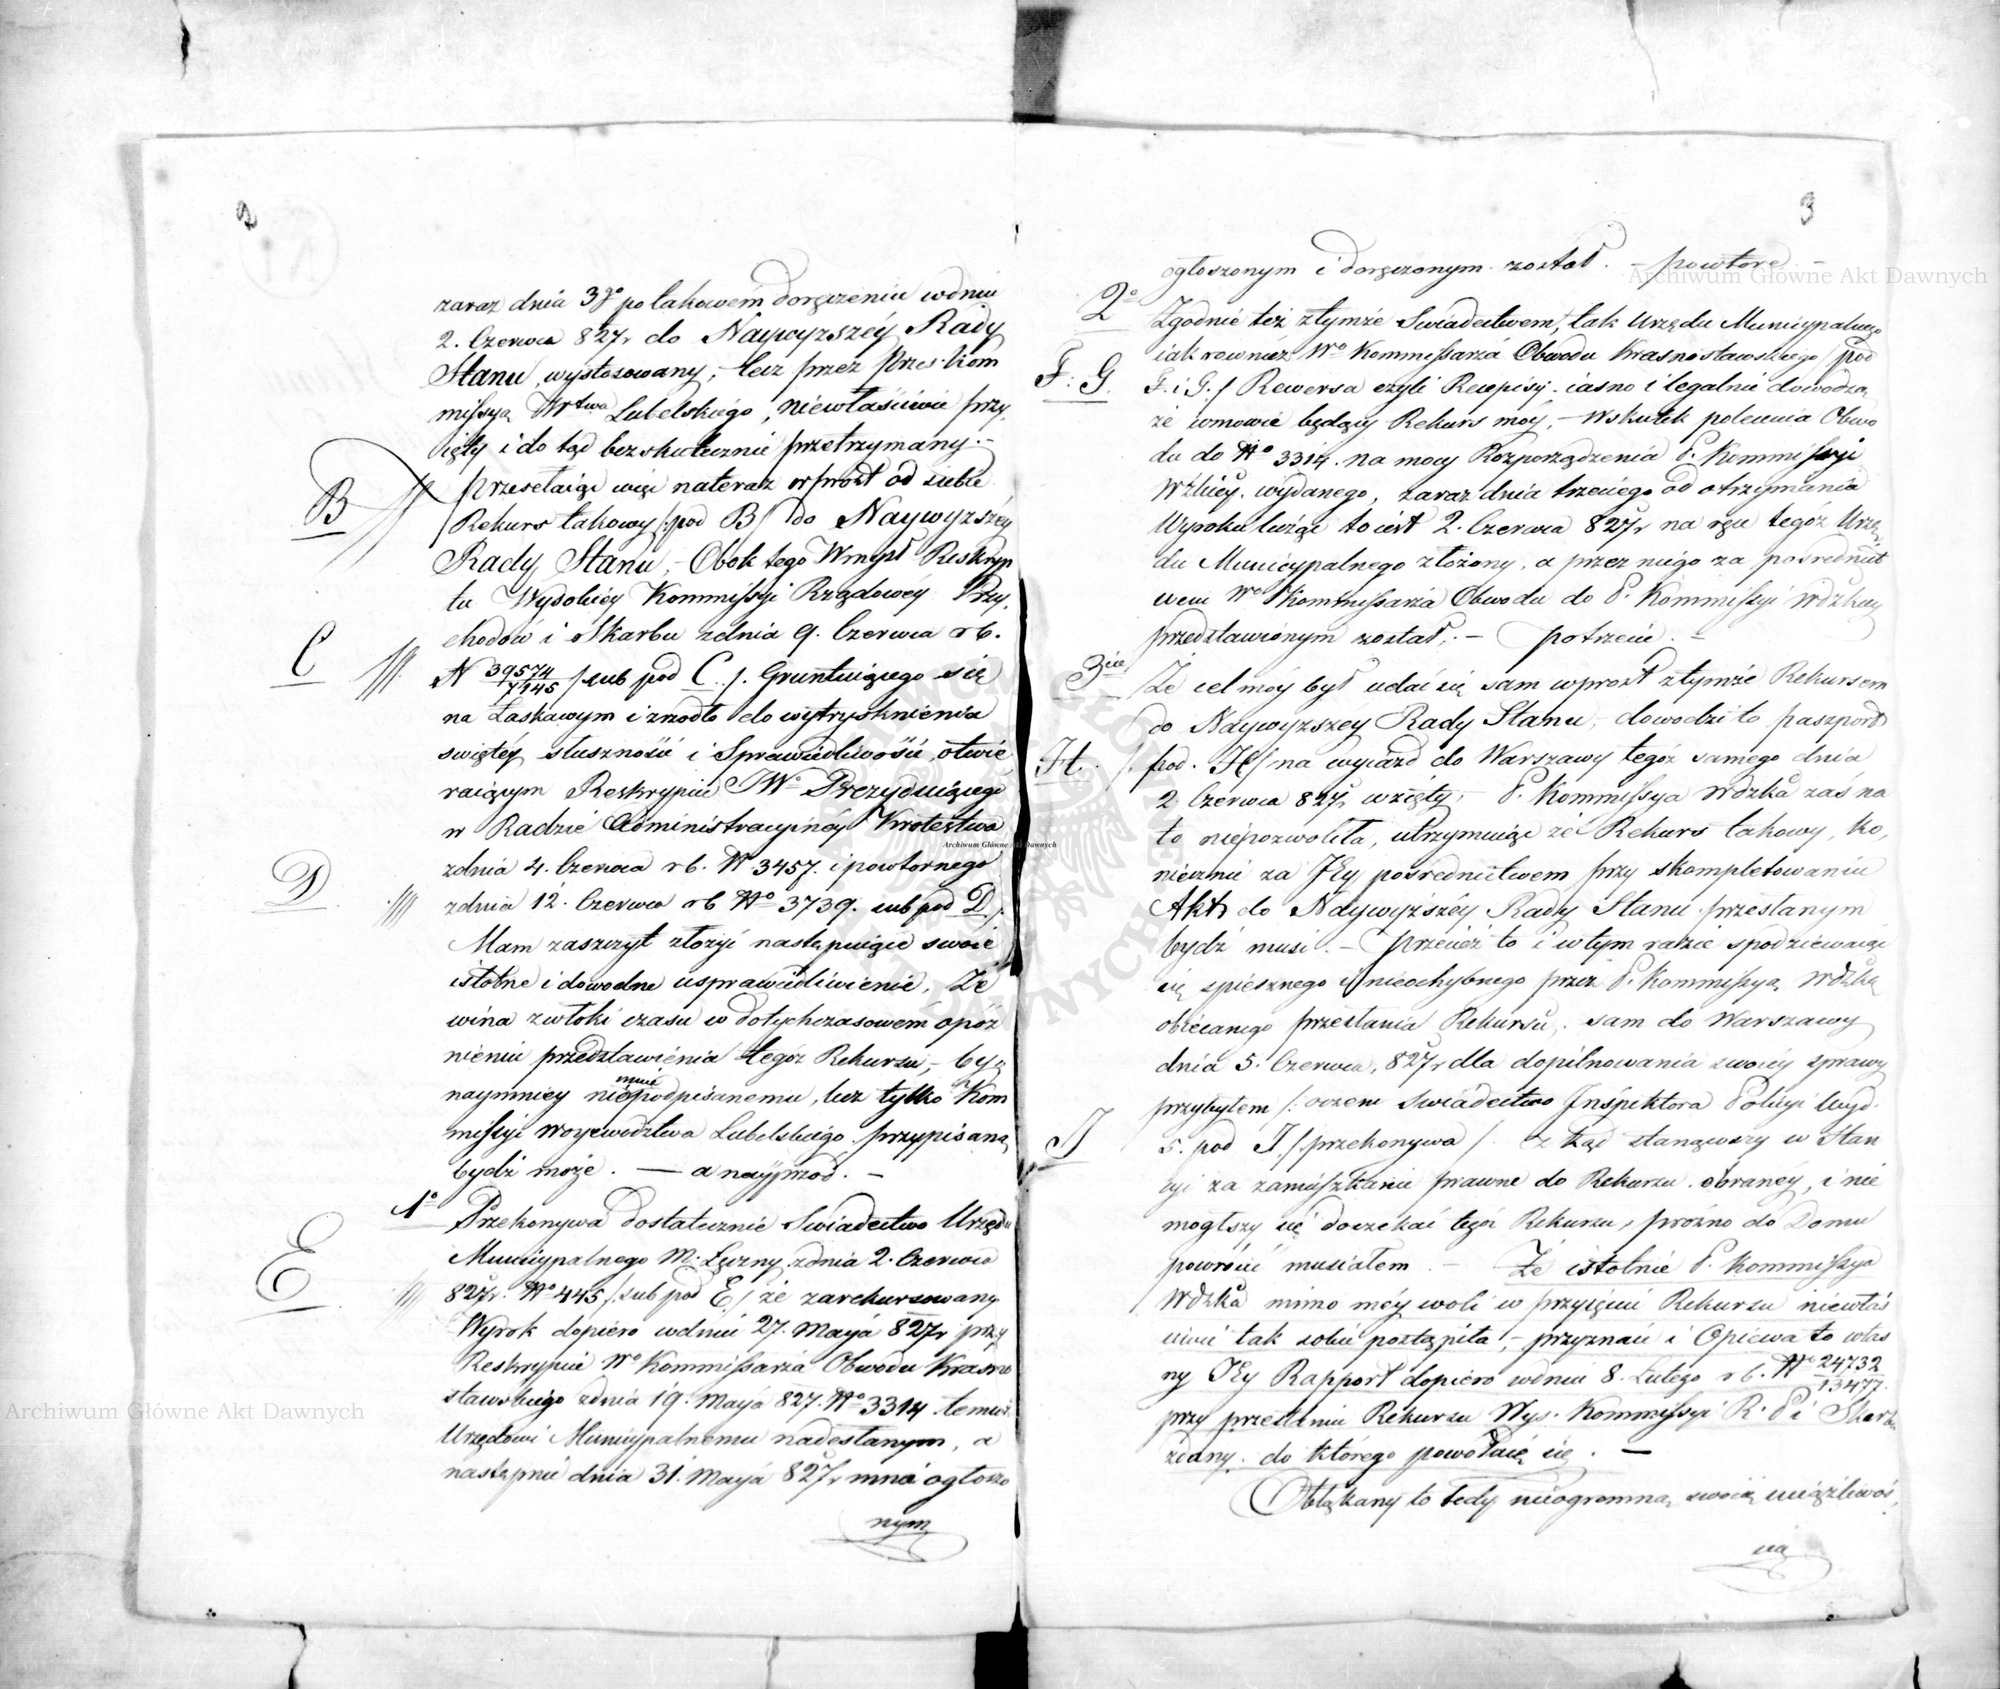 2
zaraz dnia 3go po takowem doręczeniu w dniu
2. Czerwca 827r do Naywyzszéy Rady
Stanu, wystosowany, – lecz przez Prześ: Kom
missyą Wtwa Lubelskiego, niewłaściwie przy,
ięty i do tąd bezskutecznie przetrzymany. –
B
Przesełaiąc więc nateraz wprost od siebie
Rekurs takowy /: pod B/ do Naywyzszéy
Rady Stanu, – Obok tego Wmyśl Reskryp
tu Wysokiey Kommissyi Rządowéy Przy,
chodów i Skarbu zdnia 9. Czerwca rb.
C
N 39574/7145 /sub pod C./. Gruntuiącego się
na Łaskawym i zrzodło do wytrysknienia
swiętéy słuszności i Sprawiedliwości, otwie
raiącym Reskrypcie JWo Prezyduiącego
w Radzie Administracyinéy Krolestwa
zdnia 4. Czerwca rb. No 3457. i powtornego
D
zdnia 12. Czerwca rb No 3739. sub pod D./.
Mam zaszczyt złożyć następuiące swoie
istotne i dowodne usprawiedliwienie, Że
wina zwłoki czasu w dotychczasowém opoź
nieniu przedstawienia tegóż Rekursu, – by„
naymniey mnie niżépodpisanemu, lecz tylko Kom
missyi Woyewodztwa Lubelskiego przypisaną
bydź może. — a nayprzod. –
1o
Przekonywa dostatecznie Swiadectwo Urzędu
Municypalnego M. Łęczny zdnia 2. Czerwca
E
827r. No 445/. sub pod E/ że zarekursowany
Wyrok dopiero w dniu 27. Maya 827r przy
Reskrypcie Wo Kommissarza Obwodu Krasno
stawskiego zdnia 19. Maya 827. No 3314. temuż
Urzędowi Municypalnemu nadesłanym, a
następnie dnia 31. Maya 827r mnie ogłoszo
nym
3
ogłoszonym i doręczonym został. – powtore. –
2o
Zgodnie też ztymże Swiadectwem, tak Urzędu Municypalnego
iak rownież Wo Kommissarza Obwodu Krasnostawskiego / pod
F: G.
F. i G./ Rewersa czyli Recepisy. iasno i legalnie dowodzą
że wmowie będący Rekurs moy, – Wskutek polecenia Obwo
du do No 3314. na mocy Rozporządzenia P. Kommissyi
Wdzkiey. wydanego, zaraz dnia trzeciego od otrzymania
Wyroku licząc to iest 2. Czerwca 827r na ręce tegóż Urzę
du Municypalnego złożony, a przez niego za pośrednict
wem Wo Kommissarza Obwodu do P. Kommissyi Wdzkiey
przedstawionym został. – potrzecie. –
3cie
Że cel moy był udać się sam wprost ztymże Rekursem
do Naywyzszéy Rady Stanu, dowodzi to paszport
H.
/. pod. H/ na wyiazd do Warszawy tegóż samego dnia
2 Czerwca 827r wzięty, – P. Kommissya Wdzka zaś na
to niépozwoliła, utrzymuiąc że Rekurs takowy, ko,
niecznie za Jey pośrednictwem przy skompletowaniu
Akt do Naywyższéy Rady Stanu przesłanym
bydź musi. – Przecież to i w tym razie spodziewaiąc
się spiesznego i nieochybnego przez P. Kommissyą Wdzką
obiecanego przesłania Rekursu. sam do Warszawy
dnia 5. Czerwca, 827r dla dopilnowania swoiéy sprawy
przybyłem /: oczem Swiadectwo Inspektora Policyi Wydz.
J
5. pod J./ przekonywa /. z kąd stanąwszy w Stan
cyi za zamieszkanie prawne do Rekursu obranéy, i nie
mogłszy się doczekać tegóż Rekursu, prózno do Domu
powrócić musiałem. – Że istotnie P. Kommissya
Wdzka mimo méy woli w przyięciu Rekursu niewłaś
ciwie tak sobie postąpiła, – przyznaie i Opiewa to włas
ny Jéy Rapport dopiero w dniu 8. Lutego rb. No 24732/13477.
przy przesłaniu Rekursu Wys. Kommissyi R. P i Skarb
zdany. do którego powołuię się. —
Obłąkany to tedy nieogromną swoią uciążliwoś,
cią